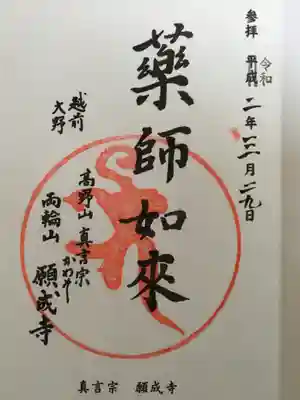 參拜 平成 令和 二年三月二九日
藥師如來
越前
大野
高野山 真言宗
両輪山 願成寺
真言宗 願成寺